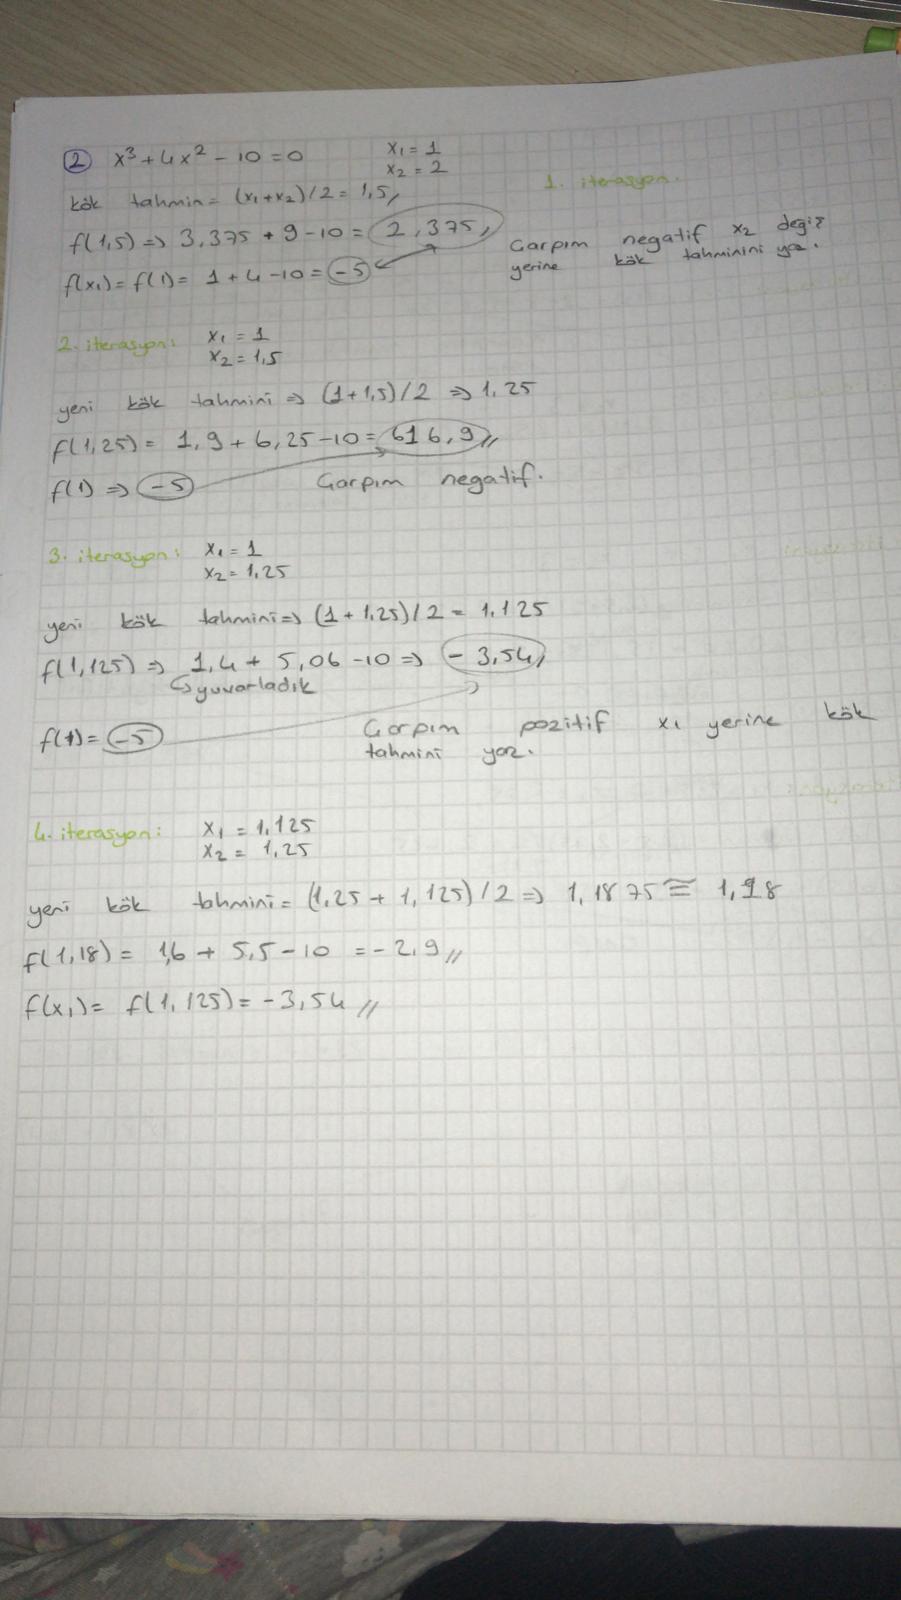 2 x³ + 4x² - 10 = 0 x₁ = 1
x₂ = 2
1. iterasyon.
kök tahmin = (x₁+x₂)/2 = 1,5//
f(1,5) => 3,375 + 9 - 10 = 2,375//
Çarpım negatif x₂ değiş
yerine kök tahminini yaz.
f(x₁) = f(1) = 1 + 4 - 10 = -5
2. iterasyon: x₁ = 1
x₂ = 1,5
yeni kök tahmini => (1+1,5)/2 => 1,25
f(1,25) = 1,9 + 6,25 - 10 = 616,9//
f(1) => -5 Çarpım negatif.
3. iterasyon: x₁ = 1
x₂ = 1,25
yeni kök tahmini => (1 + 1,25)/2 = 1,125
f(1,125) => 1,4 + 5,06 - 10 => -3,54//
↪ yuvarladık
f(1) = -5 Çarpım pozitif x₁ yerine kök
tahmini yaz.
4. iterasyon: x₁ = 1,125
x₂ = 1,25
yeni kök tahmini = (1,25 + 1,125)/2 => 1,1875 ≅ 1,18
f(1,18) = 1,6 + 5,5 - 10 = -2,9//
f(x₁) = f(1,125) = -3,54//